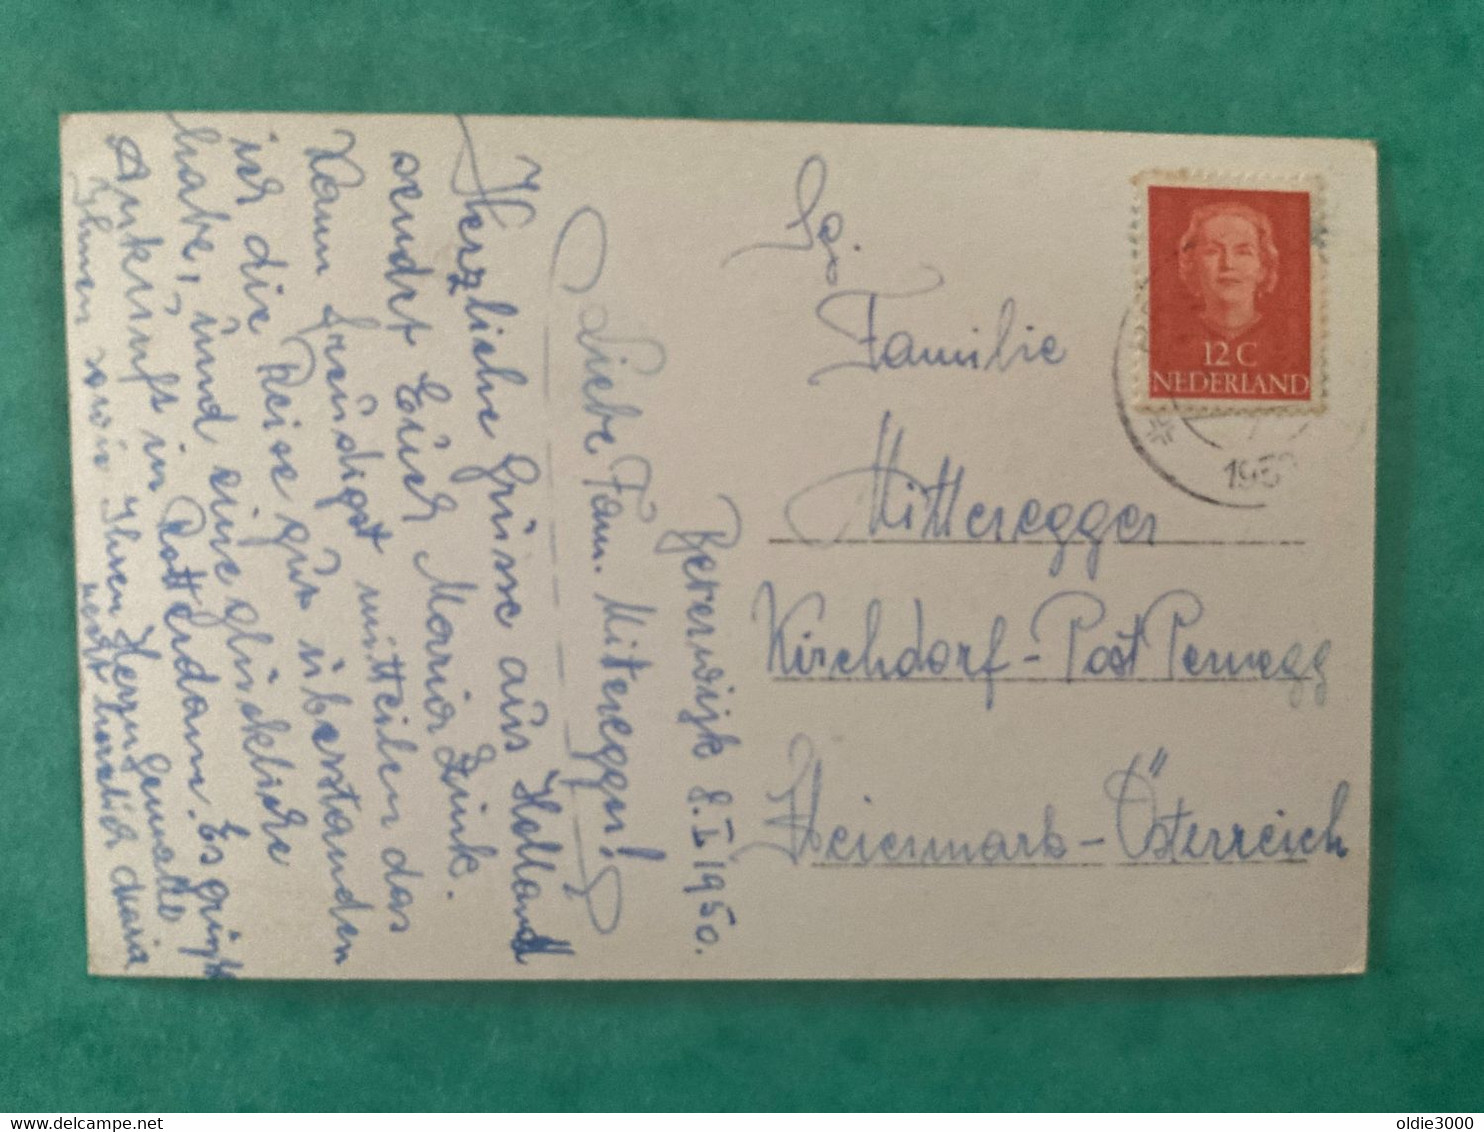 Beverwijk 8.I.1950.
Liebe Fam. Mitteregger!
Herzliche Grüsse aus Holland
sendet Euch Maria Zink.
Kann freudigst mitteilen das
ich die Reise gut überstanden
habe, und eine glückliche
Ankunft in Rotterdam. Es grüßt
Ihnen sowie Ihren Herrn Gemahl
recht herzlich Maria
Sg.
Familie
Mitteregger
Kirchdorf-Post Pernegg
Steiermark-Österreich
12 C
NEDERLAND
oldie3000
delcampe.net